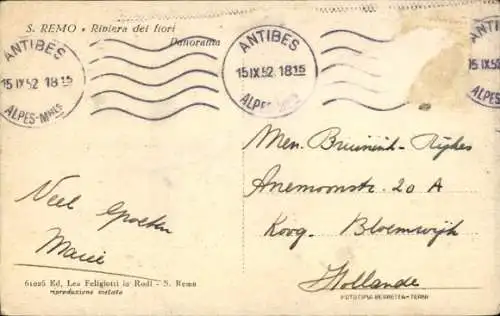 S. REMO • Riviera dei fiori
Panorama
ANTIBES
15 IX 52 18 15
ALPES-MMES
ANTIBES
15 IX 52 18 15
ALPES-MMES
Men. Bruinink-
Anemoonstr. 20 A
Koog. Bloemwijk
Hollande
Veel groeten
Marie
61026 Ed, Lea Feligiotti in Rodi - S. Remo
riproduzione vietata
FOTOTIPIA BERRETTA-TERNI